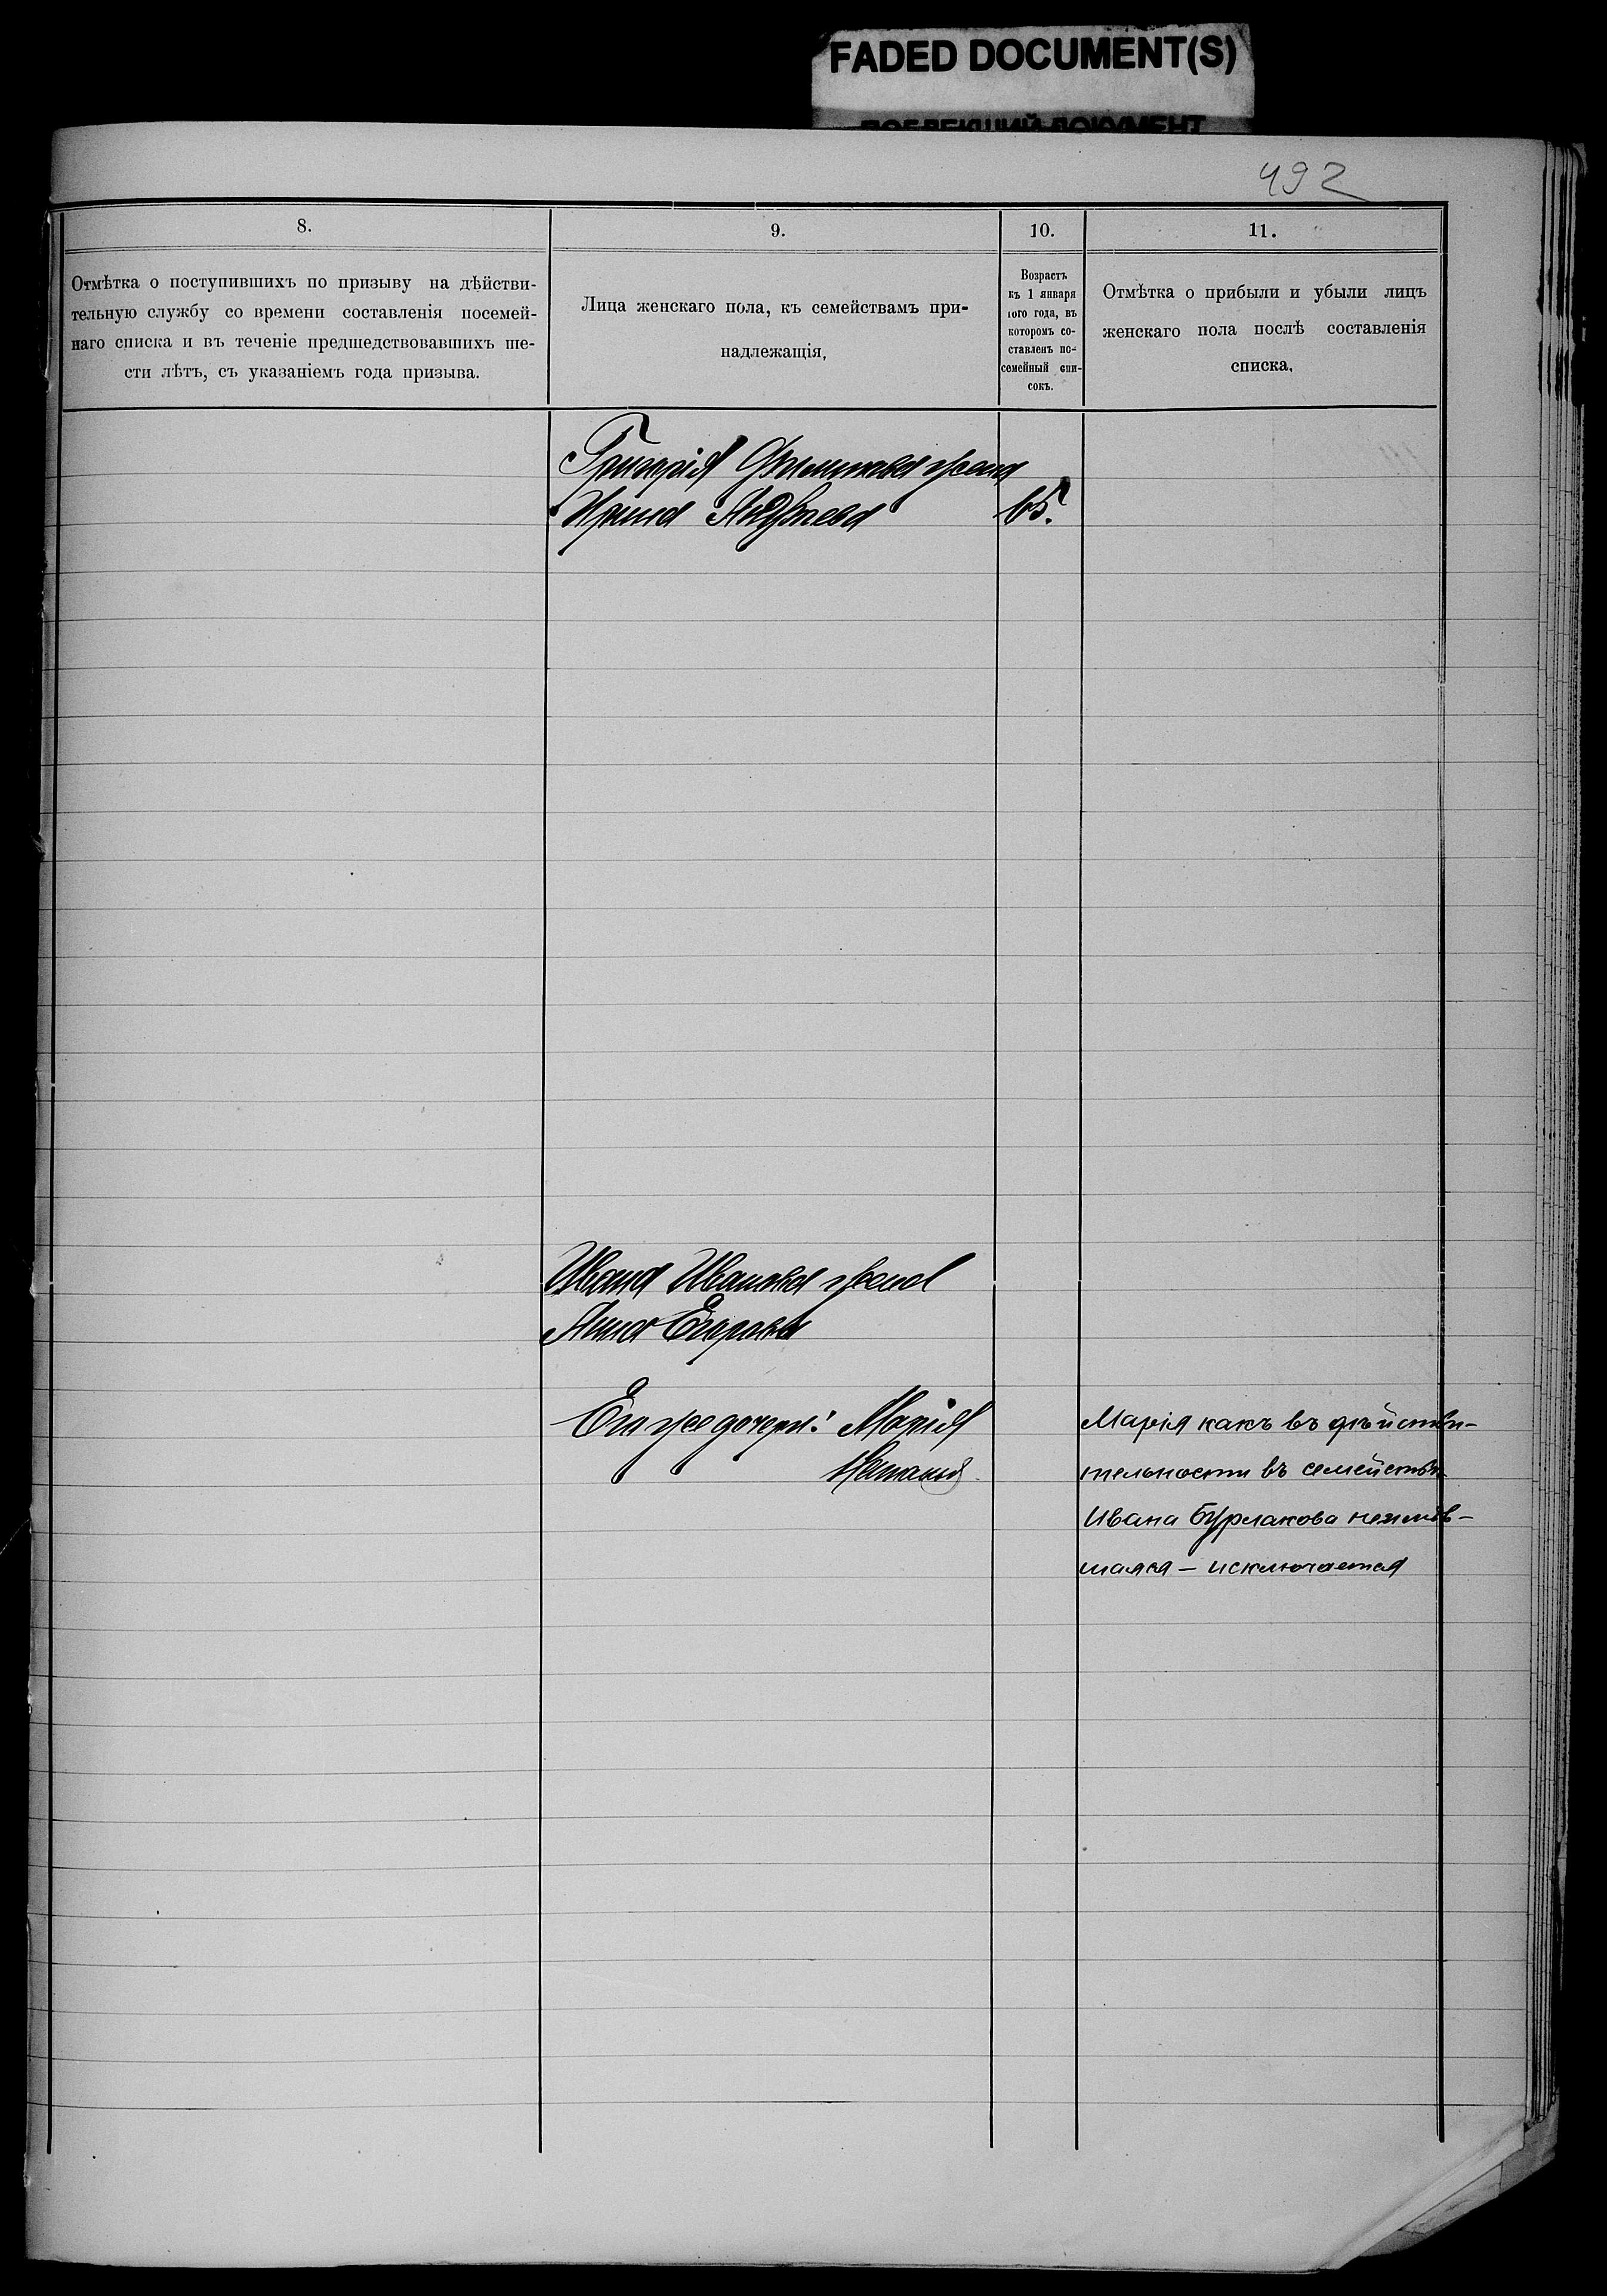 FADED DOCUMENT(S)
ПОБЛЕКШИЙ ДОКУМЕНТ
492
8.
9.
10.
11.
Отмѣтка о поступившихъ по призыву на дѣйстви-
тельную службу со времени составленія посемей-
наго списка и въ теченіе предшедствовавшихъ ше-
сти лѣтъ, съ указаніемъ года призыва.
Лица женскаго пола, къ семействамъ при-
надлежащія,
Возрастъ
къ 1 января
того года, въ
которомъ со-
ставленъ по-
семейный спи-
сокъ.
Отмѣтка о прибыли и убыли лицъ
женскаго пола послѣ составленія
списка,
Григорія Филипова жена
Ирина 65.
Ивана Иванова жена
Анна Егорова
Его же дочери: Марія
Наталья
Марія какъ въ дѣйстви-
тельности въ семействѣ
Ивана Бурлакова неимѣв-
шаяся – исключается